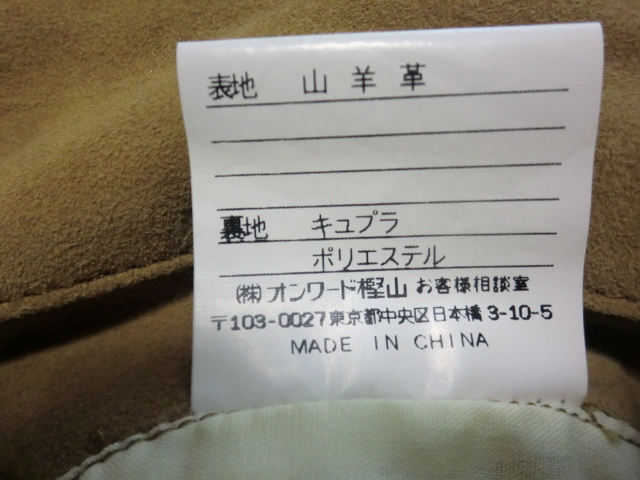 表地 山羊革
裏地 キュプラ
ポリエステル
(株)オンワード樫山 お客様相談室
〒103-0027東京都中央区日本橋3-10-5
MADE IN CHINA